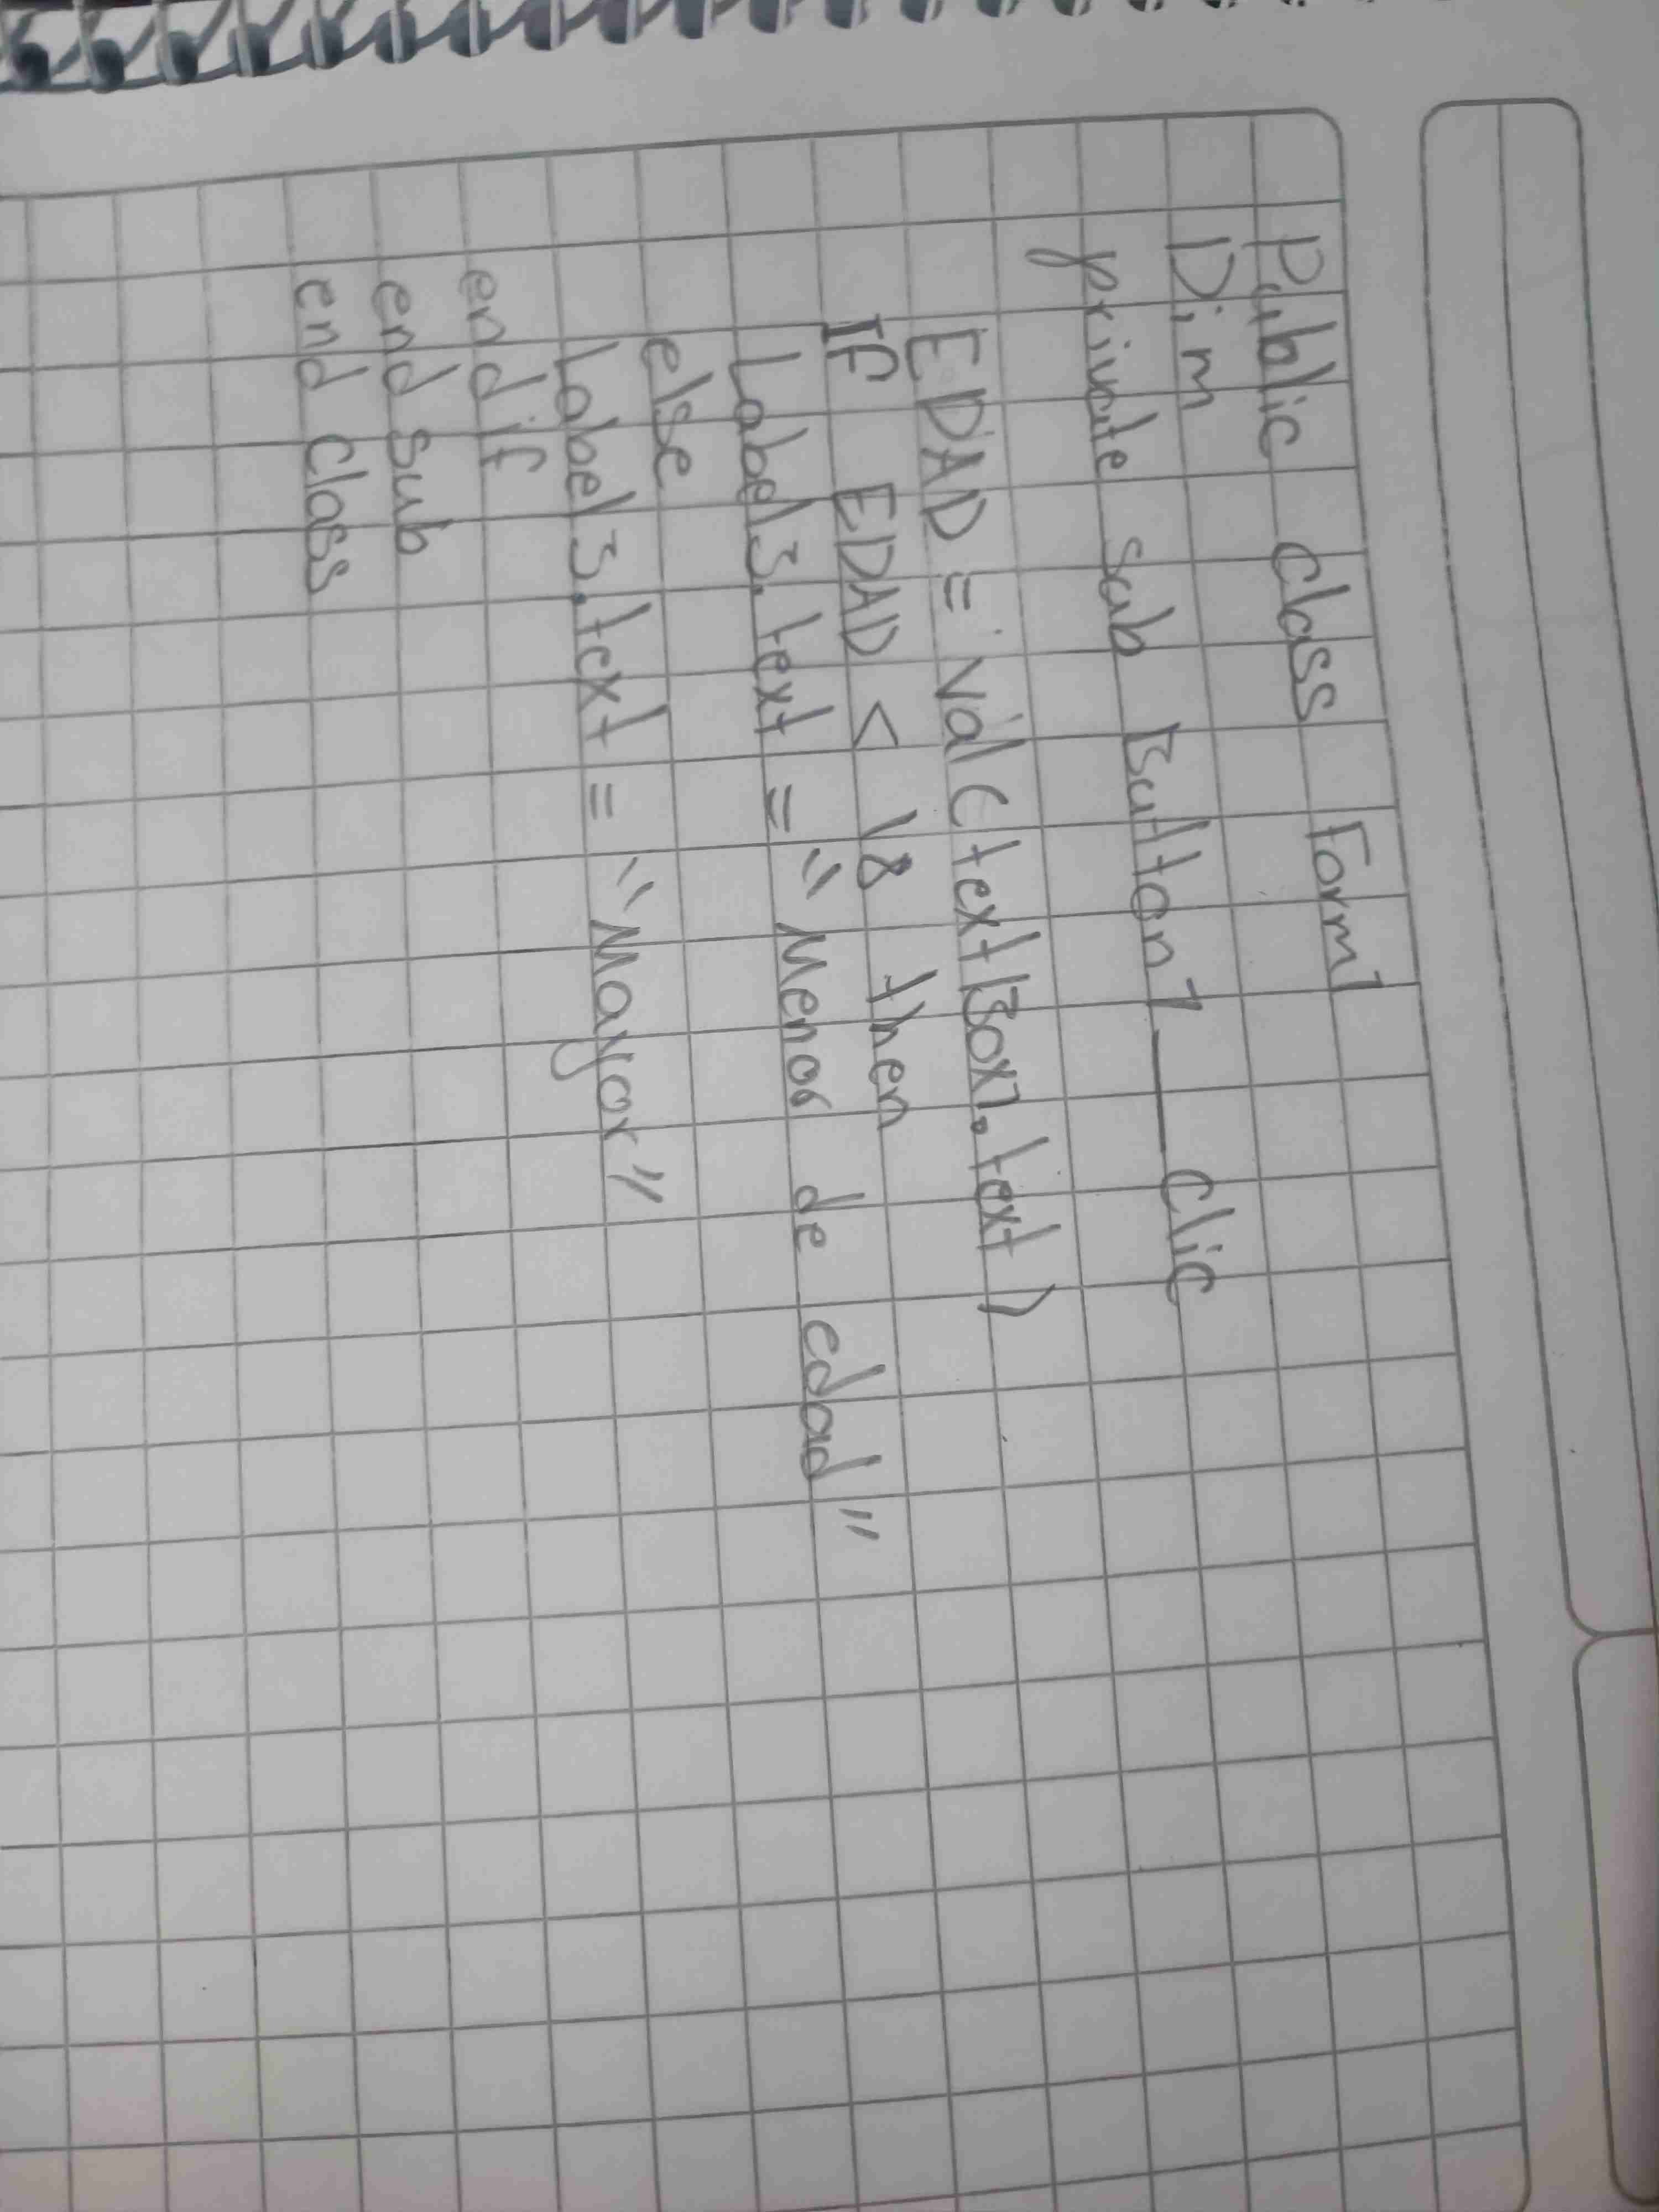 Public class Form1
Dim
private sub Button1_Clic
EDAD = Val(textBox1.text)
IF EDAD < 18 then
Label3.text = "Menor de edad"
else
Label3.text = "Mayor"
end if
end sub
end class